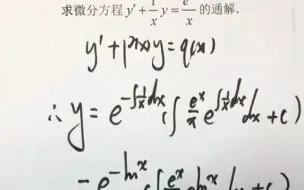 求微分方程 y' + 1/x y = e^x/x 的通解.
y' + p(x)y = q(x)
∴ y = e^{-∫1/x dx} (∫ e^x/x e^{∫1/x dx} dx + c)
= e^{-ln x} (∫ e^x/x e^{ln x} dx + c)